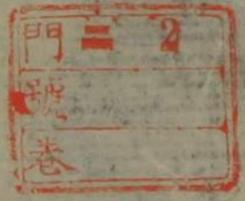 門二 2
號
卷